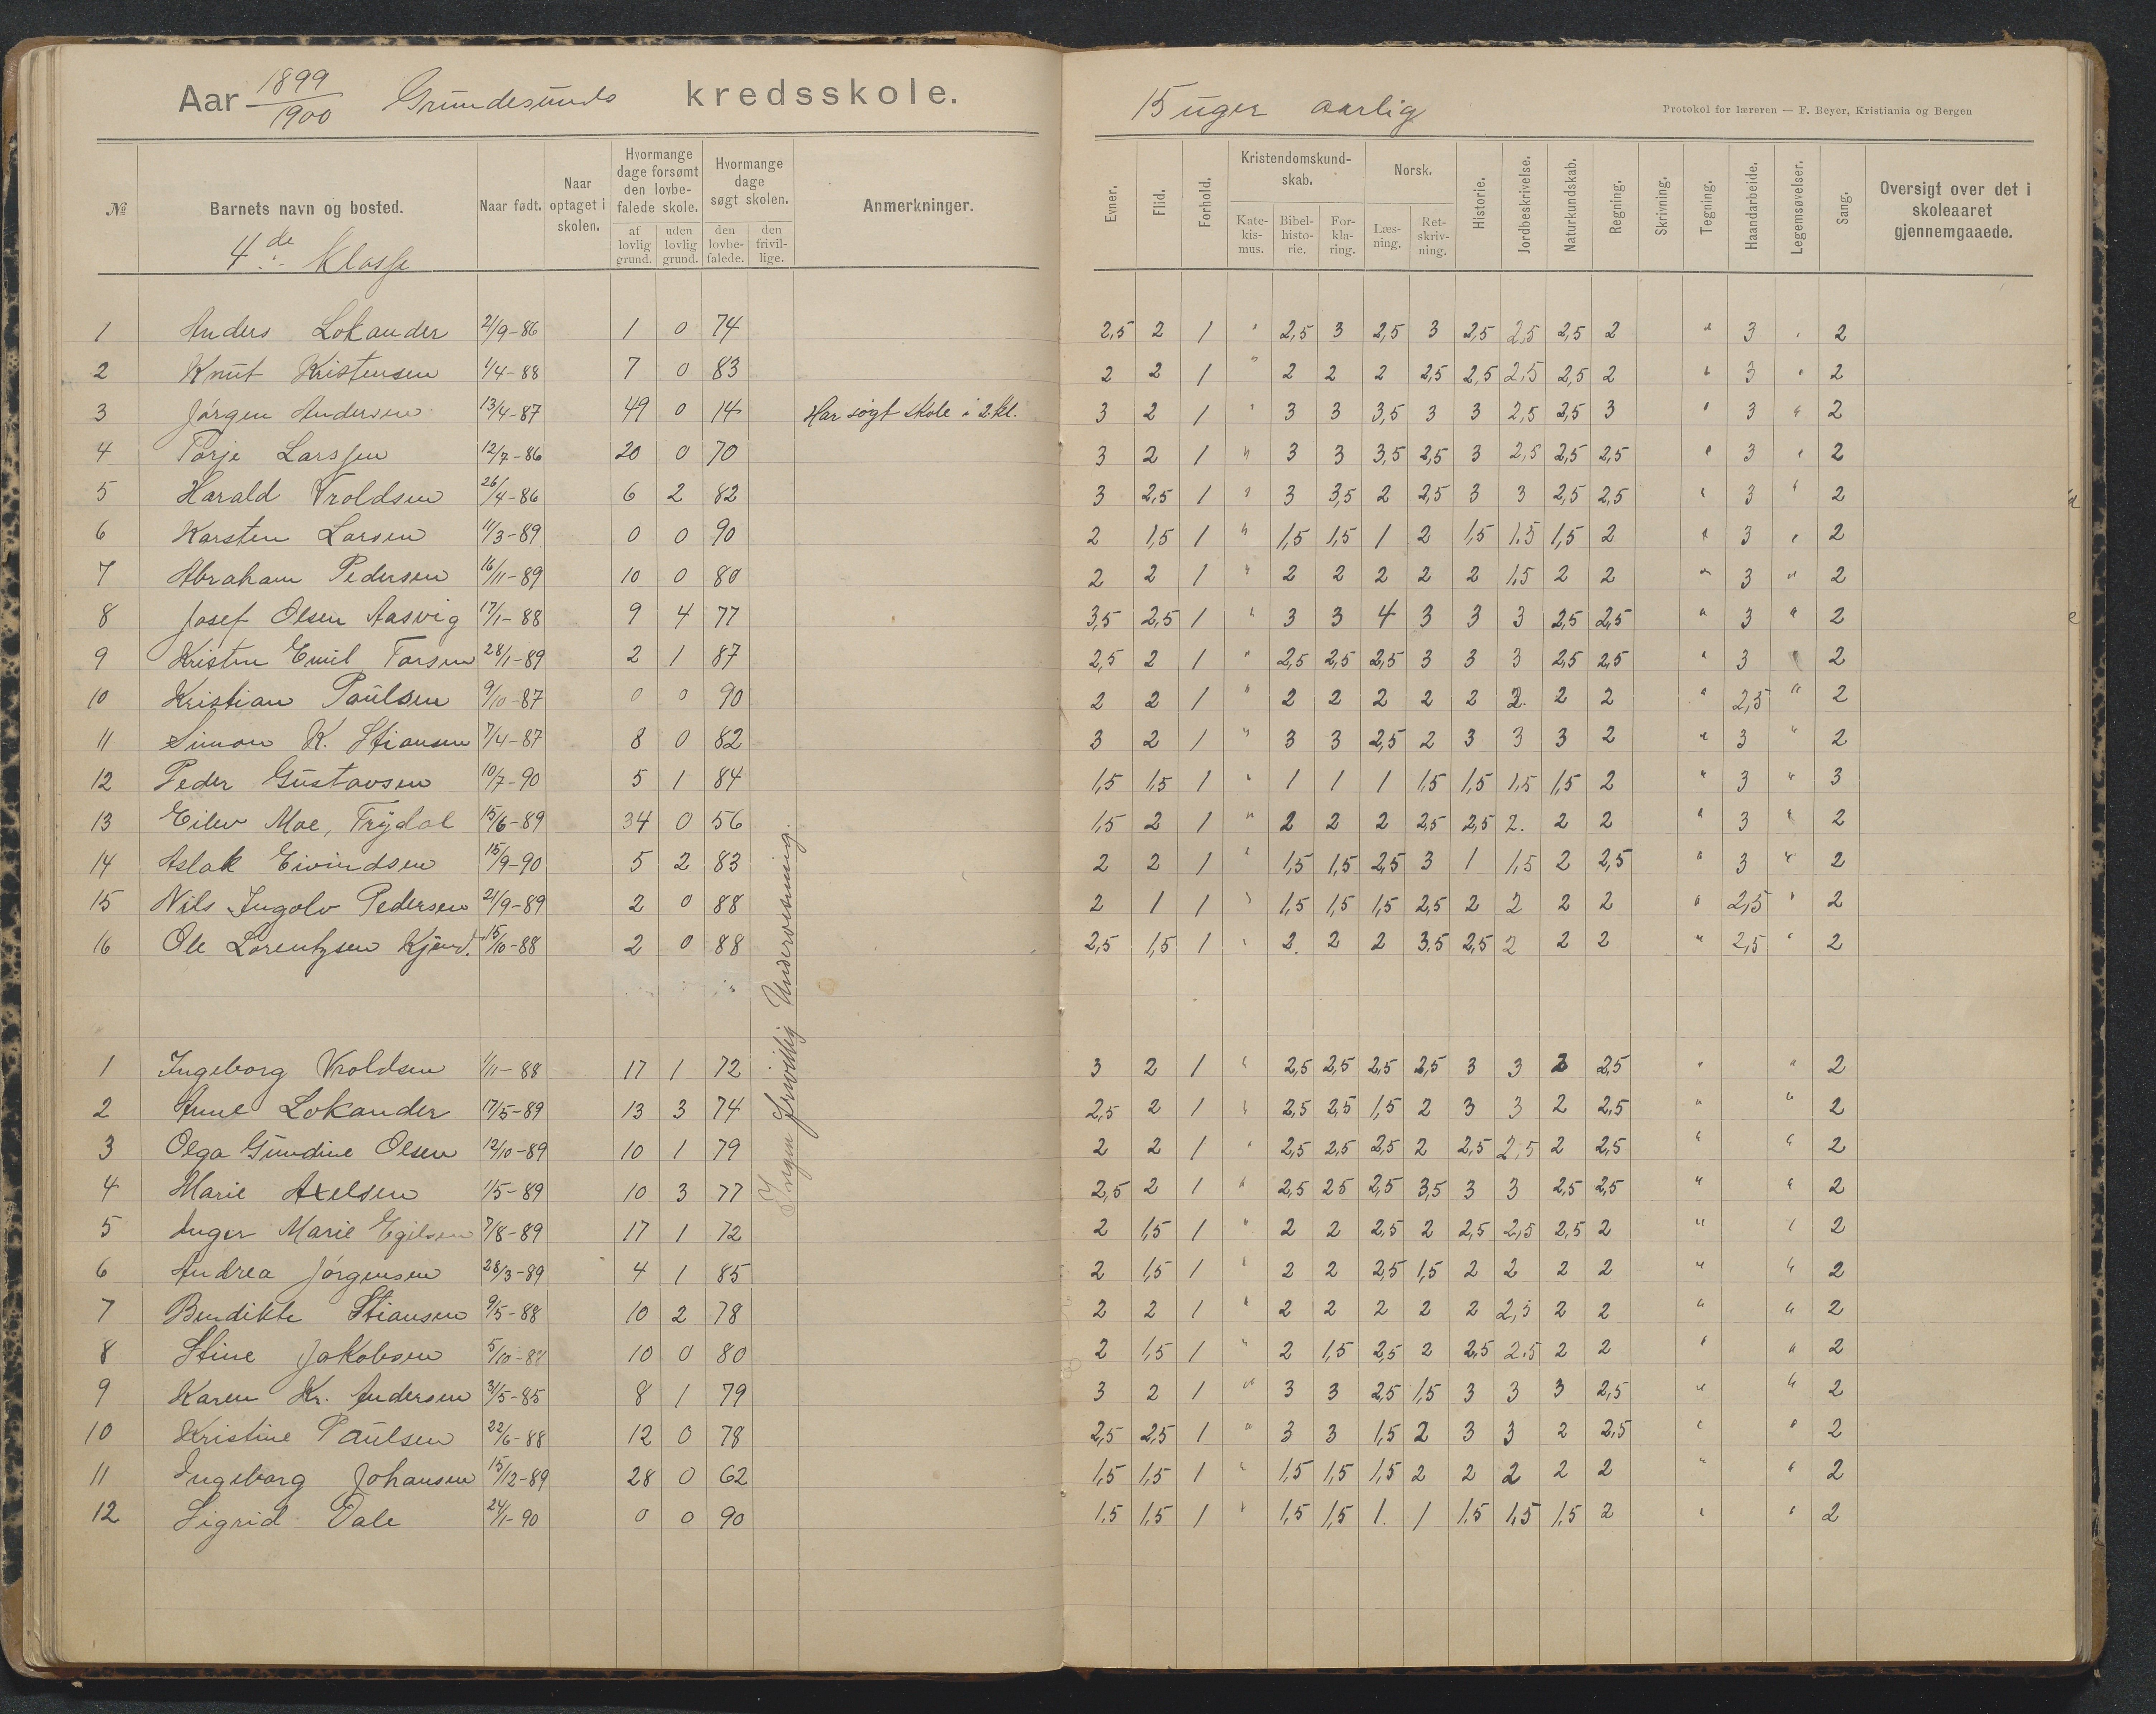 Aar 1899/1900 Grundesunds kredsskole.
15 uger aarlig
Protokol for læreren — F. Beyer, Kristiania og Bergen
№ Barnets navn og bosted. Naar født. Naar optaget i skolen. Hvormange dage forsømt den lovbefalede skole. af lovlig grund. uden lovlig grund. Hvormange dage søgt skolen. den lovbefalede. den frivillige. Anmerkninger.
Evner. Flid. Forhold. Kristendomskundskab. Katekismus. Bibelhistorie. Forklaring. Norsk. Læsning. Retskrivning. Historie. Jordbeskrivelse. Naturkundskab. Regning. Skrivning. Tegning. Haandarbeide. Legemsøvelser. Sang. Oversigt over det i skoleaaret gjennemgaaede.
4de Klasse
1 Anders Lokander 21/9-86 1 0 74 2,5 2 1 " 2,5 3 2,5 3 2,5 2,5 2,5 2 " 3 " 2
2 Knut Kristensen 1/4-88 7 0 83 2 2 1 " 2 2 2 2,5 2,5 2,5 2,5 2 " 3 " 2
3 Jørgen Andersen 13/4-87 49 0 14 Har søgt skole i 2 kl. 3 2 1 " 3 3 3,5 3 3 2,5 2,5 3 " 3 " 2
4 Torje Larssen 12/7-86 20 0 70 3 2 1 " 3 3 3,5 2,5 3 2,5 2,5 2,5 " 3 " 2
5 Harald Vroldsen 26/4-86 6 2 82 3 2,5 1 " 3 3,5 2 2,5 3 3 2,5 2,5 " 3 " 2
6 Karsten Larsen 11/3-89 0 0 90 2 1,5 1 " 1,5 1,5 1 2 1,5 1,5 1,5 2 " 3 " 2
7 Abraham Pedersen 16/11-89 10 0 80 2 2 1 " 2 2 2 2 2 1,5 2 2 " 3 " 2
8 Josef Olsen Aasvig 17/1-88 9 4 77 3,5 2,5 1 " 3 3 4 3 3 3 2,5 2,5 " 3 " 2
9 Kristen Emil Torsen 28/1-89 2 1 87 2,5 2 1 " 2,5 2,5 2,5 3 3 3 2,5 2,5 " 3 " 2
10 Kristian Paulsen 9/10-87 0 0 90 2 2 1 " 2 2 2 2 2 2. 2 2 " 2,5 " 2
11 Simon K. Stiansen 7/4-87 8 0 82 3 2 1 " 3 3 2,5 2 3 3 3 2 " 3 " 2
12 Peder Gustavsen 10/7-90 5 1 84 1,5 1,5 1 " 1 1 1 1,5 1,5 1,5 1,5 2 " 3 " 3
13 Eilev Moe, Trydal 15/6-89 34 0 56 1,5 2 1 " 2 2 2 2,5 2,5 2. 2 2 " 3 " 2
14 Aslak Eivindsen 15/9-90 5 2 83 2 2 1 " 1,5 1,5 2,5 3 1 1,5 2 2,5 " 3 " 2
15 Nils Ingolv Pedersen 21/9-89 2 0 88 2 1 1 " 1,5 1,5 1,5 2,5 2 2 2 2 " 2,5 " 2
16 Ole Lorentzsen 15/10-88 2 0 88 2,5 1,5 1 " 2. 2 2 3,5 2,5 2 2 2 " 2,5 " 2
Ingen frivillig Undervisning.
1 Ingeborg Vroldsen 1/11-88 17 1 72 3 2 1 " 2,5 2,5 2,5 2,5 3 3 2 2,5 " " 2
2 Anne Lokander 17/5-89 13 3 74 2,5 2 1 " 2,5 2,5 1,5 2 3 3 2 2,5 " " 2
3 Olga Gundine Olsen 12/10-89 10 1 79 2 2 1 " 2,5 2,5 2,5 2 2,5 2,5 2 2,5 " " 2
4 Marie Axelsen 1/5-89 10 3 77 2,5 2 1 " 2,5 25 2,5 3,5 3 3 2,5 2,5 " " 2
5 Inger Marie Egilsen 7/8-89 17 1 72 2 1,5 1 " 2 2 2,5 2 2,5 2,5 2,5 2 " " 2
6 Andrea Jørgensen 28/3-89 4 1 85 2 1,5 1 " 2 2 2,5 1,5 2 2 2 2 " " 2
7 Bendikte Stiansen 9/5-88 10 2 78 2 2 1 " 2 2 2 2 2 2,5 2 2 " " 2
8 Stine Jakobsen 5/10-88 10 0 80 2 1,5 1 " 2 1,5 2,5 2 2,5 2,5 2 2 " " 2
9 Karen Kr. Andersen 31/5-85 8 1 79 3 2 1 " 3 3 2,5 1,5 3 3 3 2,5 " " 2
10 Kristine Paulsen 22/6-88 12 0 78 2,5 2,5 1 " 3 3 1,5 2 3 3 2 2,5 " " 2
11 Ingeborg Johansen 15/12-89 28 0 62 1,5 1,5 1 " 1,5 1,5 1,5 2 2 2 2 2 " " 2
12 Sigrid Dale 24/1-90 0 0 90 1,5 1,5 1 " 1,5 1,5 1. 1 1,5 1,5 1,5 2 " " 2